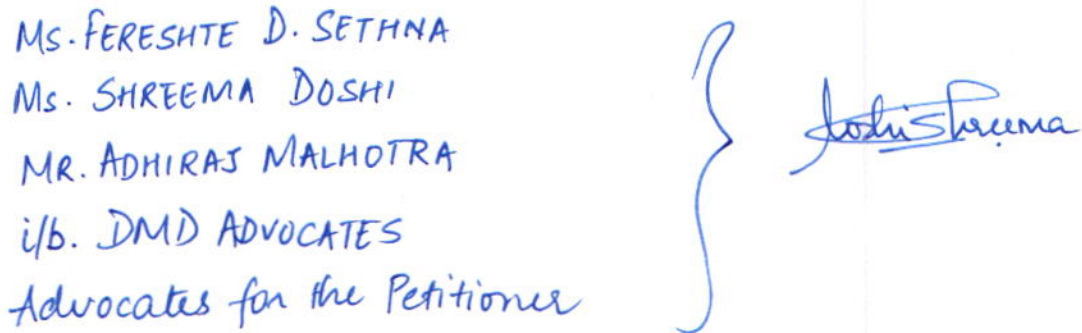 Ms. FERESHTE D. SETHNA
Ms. SHREEMA DOSHI
MR. ADHIRAJ MALHOTRA
i/b. DMD ADVOCATES
Advocates for the Petitioner
DoshiShreema